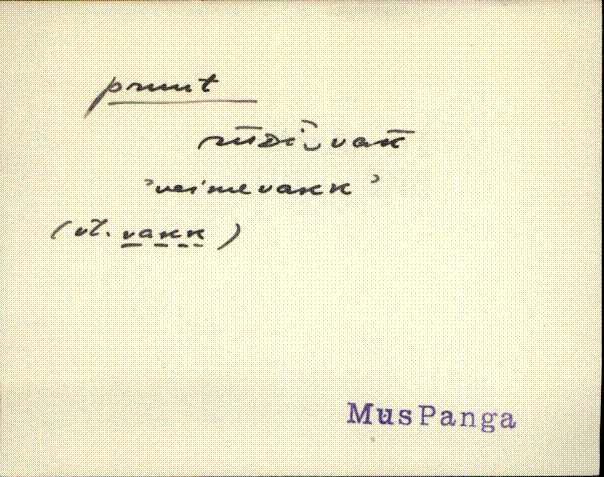 prunt
rīidi ̮vak̄
'veimevakk'
(vt. vakk)
MusPanga